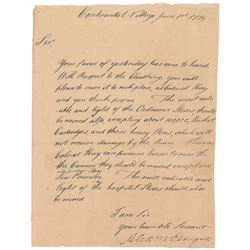 Continental Village June 1st 1779
Sir
Your favor of yesterday has come to hand.
With Respect to the Cloathing, you will
please to move it to such place, as Colonel Hay
and you think proper. The most valu-
able and light of the Ordnance Stores should
be moved also excepting about Musket
Cartridges, and those heavy Stores which will
not receive damage by the Rain. Whenever
Colonel Hay can procure horses to move the
the Cannon they should be moved excepting
Six Pounders. The most valuable and
light of the hospital Stores should also
be moved
I am Sir
your humble Servant
Alexr McDougall